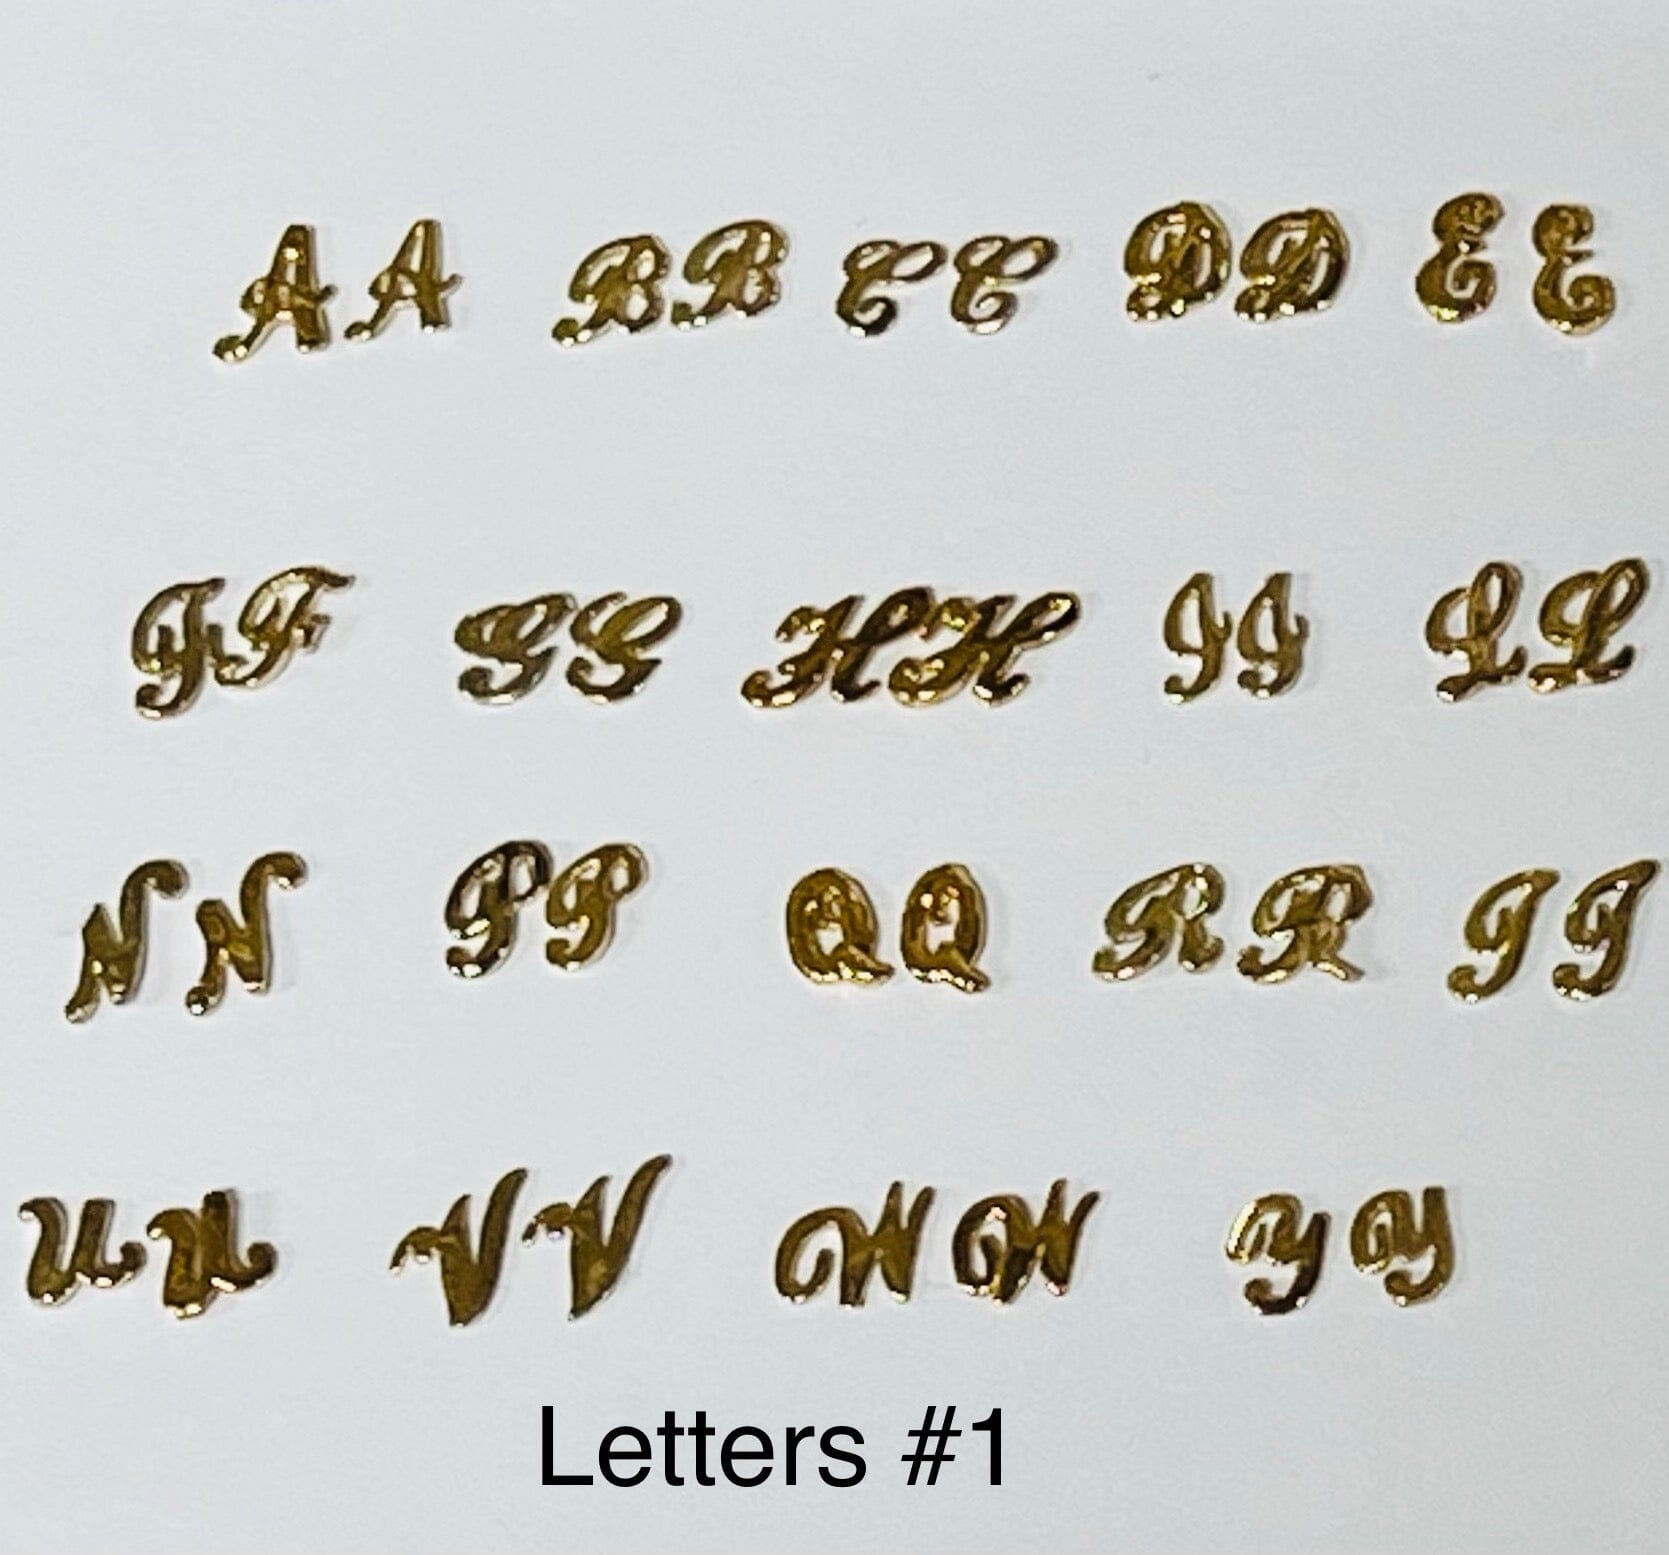 A A B B C C D D E E
F F G G H H I I L L
N N P P Q Q R R T T
U U V V W W Y Y
Letters #1